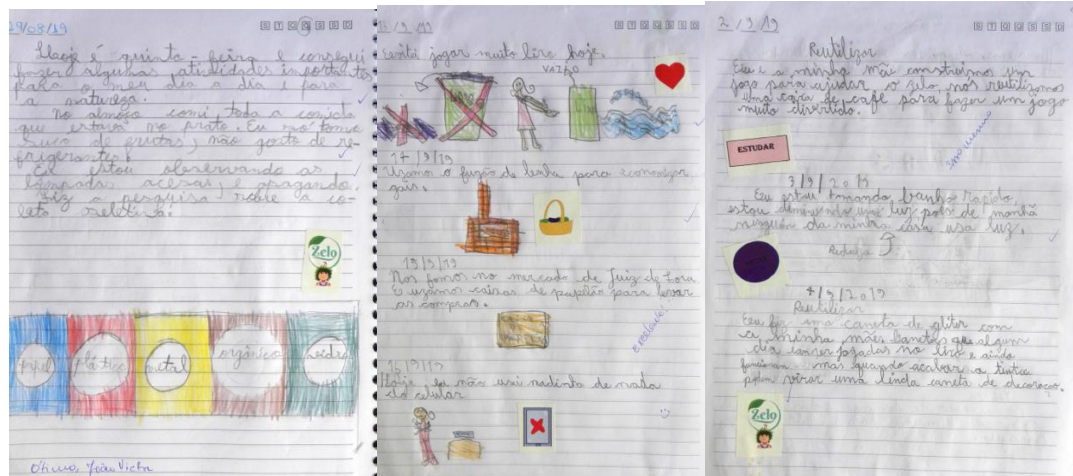 29/08/19
S T Q Q S S D
Hoje é quinta-feira e consegui
fazer algumas atividades importante
para o meu dia a dia e para
a natureza.
no almoço comi toda a comida
que estava no prato. Eu só tomo
suco de frutas, não gosto de re-
frigerantes!
Eu estou observando as
lâmpadas acesas, e apagando.
Fiz a pesquisa sobre a co-
leta seletiva.
Zelo
papel
plástico
metal
orgânico
vidro
João Victor
13/9/19
S T Q Q S S D
Evitei jogar muito lixo hoje.
VAZIO
17/9/19
Usamos o fugão de lenha para economizar
gáis.
19/9/19
Nos fomos no mercado de Juiz de Fora
e usamos caixas de papelão para levar
as compras.
excelente!
Hoje eu não usei nadinha de nada
do celular
2/9/19
S T Q Q S S D
Reutilizar
Eu e a minha mãe construimos um
jogo para ajudar o zelo, nós reutilizamos
uma caixa de café para fazer um jogo
muito divertido.
ESTUDAR
3/9/2019
Eu estou tomando banho rápido,
estou luz pois de manhã
ninguém da minha casa usa luz.
Reduza
4/9/2019
Reutilizar
Eu fiz uma caneta de gliter com
a minha mãe, canetas que algum
dia serem jogadas no lixo e ainda
funcionam mas quando acabar a tinta
podem virar uma linda caneta de decoração.
Zelo